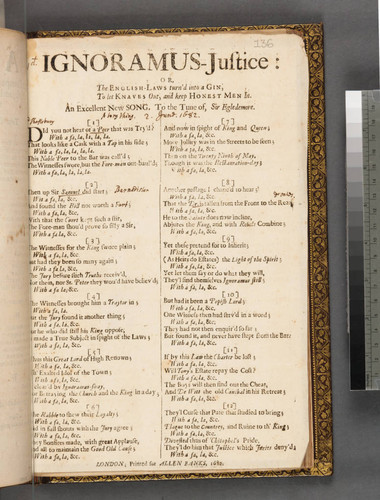 136
IGNORAMUS-Justice:
OR,
The ENGLISH-LAWS turn'd into a GIN,
To let KNAVES Out, and keep HONEST MEN In.
An Excellent New SONG, To the Tune of, Sir Eglesdemore.
2. 1682.
[1]
Did you not hear of a Peer that was Try'd?
With a fa, la, la, la, la.
That looks like a Cask with a Tap in his side;
With a fa, la, la, la, la.
This Noble Peer to the Bar was call'd;
The Witnesses swore, but the Fore-man out-bawl'd;
With a fa, la, la, la, la.
[2]
Then up Sir Samuel did start;
With a fa, la, &c.
And found the Bill not worth a Fart;
With a fa, la, &c.
With that the Court kept such a stir,
The Fore-man should prove so silly a Sir,
With a fa, la, &c.
[3]
The Witnesses for the King swore plain;
With a fa, la, &c.
And had they been so many again;
With a fa, la, &c.
The Jury before this Truths receiv'd,
But their, nor St. Peter they would have believ'd;
With a fa, la, &c.
[4]
The Witnesses brought him a Traytor in;
With a fa, la.
But the Jury found in another thing;
With a fa, la, &c.
For he who did still his King oppose,
Is made a True Subject in spight of the Laws;
With a fa, la, &c.
[5]
Thus this Great Lord of High Renown;
With a fa, la, &c.
The Exalted Idol of the Town;
With a fa, la, &c.
Is clear'd by Ignoramus sway,
For Betraying the Church and the King in a day;
With a fa, la, &c.
[6]
The Rabble to shew their Loyalty;
With a fa, la, &c.
And in full shouts with the Jury agree;
With a fa, la, &c.
They Bonfires made, with great Applause,
And all to maintain the Good Old Cause;
With a fa, la, &c.
[7]
And now in spight of King and Queen;
With a fa, la, &c.
More Justice was in the Streets to be seen;
With a fa, la, &c.
Than on the Twenty Ninth of May,
Though it was the Restauration-day;
With a fa, la, &c.
[8]
Another passage I chanc'd to hear;
With a fa, la, &c.
That the from the Front to the Rear;
With a fa, la, &c.
He to the now incline,
Abjures the King, and with Rebels Combine;
With a fa, la, &c.
[9]
Yet these pretend for to Inherit;
With a fa, la, &c.
(As Heirs to Estates) the Light of the Spirit;
With a fa, la, &c.
Yet let them say or do what they will,
They'l find themselves Ignoramus still;
With a fa, la, &c.
[10]
But had it been a Popish Lord;
With a fa, la, &c.
One Witness then had serv'd in a word;
With a fa, la, &c.
They had not then enquir'd so far;
But found it, and never have stept from the Bar:
With a fa, la, &c.
[11]
If by this Law the Charter be lost;
With a fa, la, &c.
Will Tony's Estate repay the Cost?
With a fa, la, &c.
The Boys will then find out the Cheat,
And De Wit the old Cuckold in his Retreat;
With a fa, la, &c.
[12]
They'l Curse that Pate that studied to bring;
With a fa, la, &c.
Plague to the Countrey, and Ruine to th' King;
With a fa, la, &c.
Deceased thus of Pride,
They'l do him that Justice which Juries deny'd;
With a fa, la, &c.
LONDON, Printed for ALLEN BANKS, 1682.